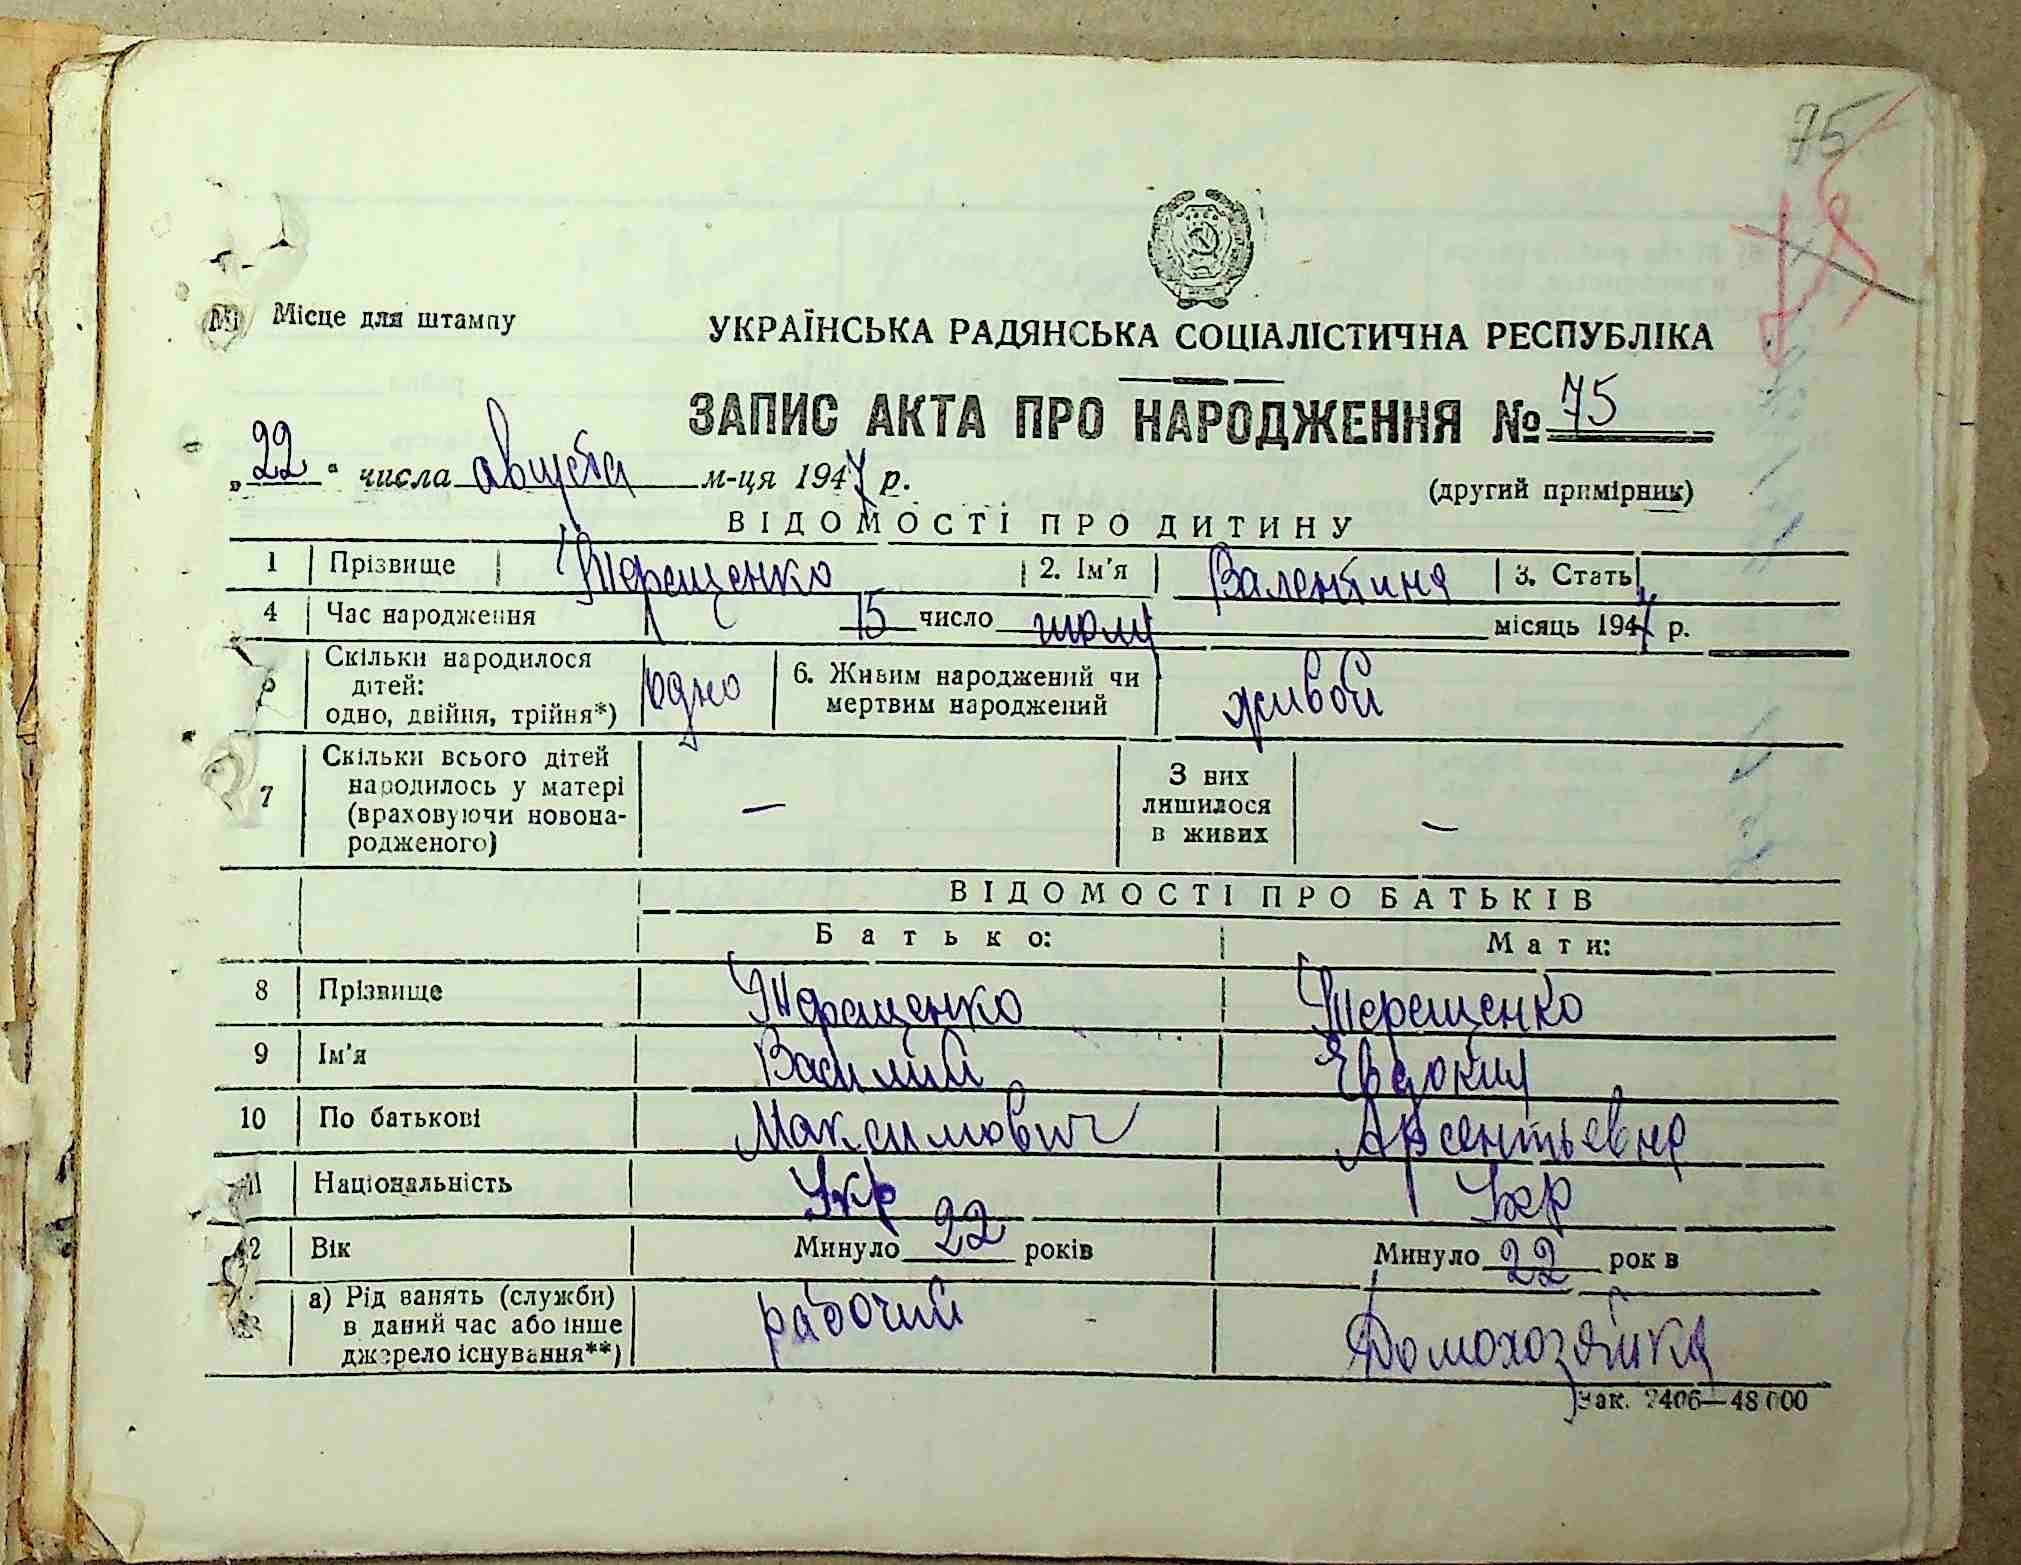 75
Місце для штампу
УКРАЇНСЬКА РАДЯНСЬКА СОЦІАЛІСТИЧНА РЕСПУБЛІКА
ЗАПИС АКТА ПРО НАРОДЖЕННЯ № 75
„22“ числа августа м-ця 1947 р.
(другий примірник)
ВІДОМОСТІ ПРО ДИТИНУ
1 Прізвище Терещенко 2. Ім'я Валентина 3. Стать
4 Час народження 15 число июля місяць 1947 р.
5 Скільки народилося дітей: одно, двійня, трійня*) одно 6. Живим народжений чи мертвим народжений живой
7 Скільки всього дітей народилось у матері (враховуючи новонародженого) — З них лишилося в живих —
ВІДОМОСТІ ПРО БАТЬКІВ
Батько: Мати:
8 Прізвище Терещенко Терещенко
9 Ім'я Василий Евдокия
10 По батькові Максимович Арсентьевна
11 Національність Укр Укр
12 Вік Минуло 22 років Минуло 22 рок в
а) Рід занять (служби) в даний час або інше джерело існування**) рабочий Домохозяйка
Зак. 2406—48 000